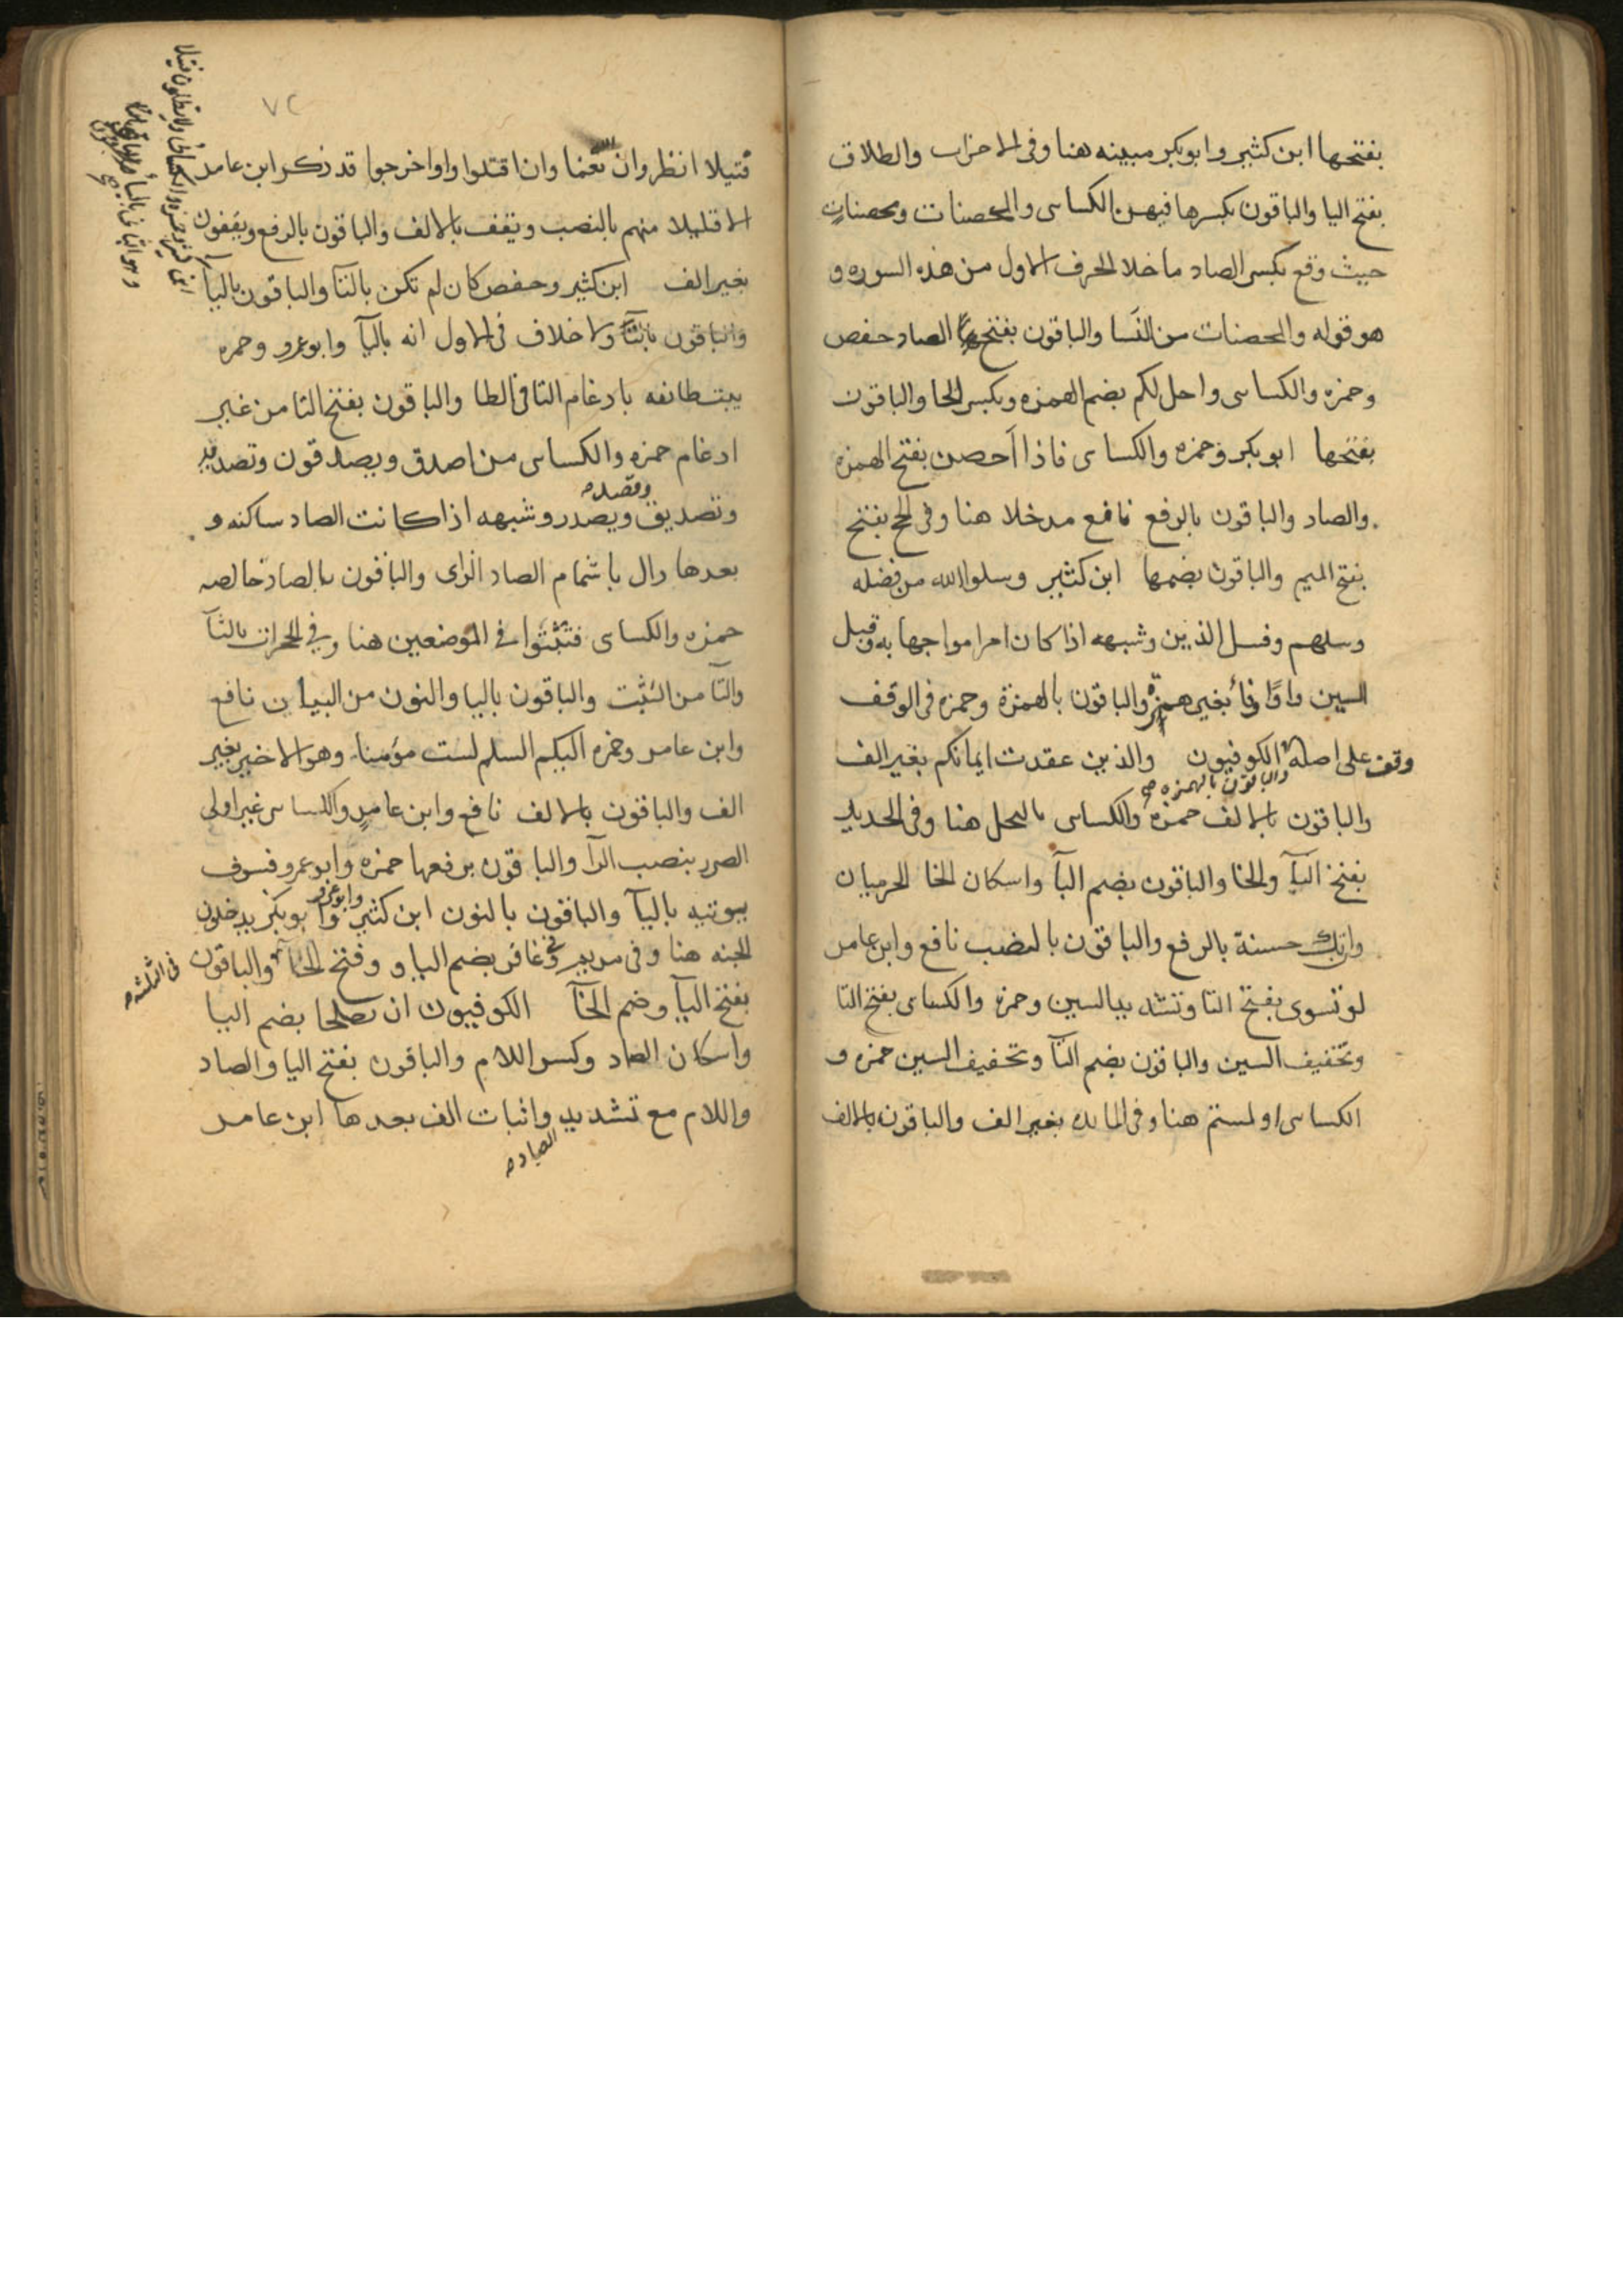 بفتحها ابن كثير وابوبكر مبينه هنا وفى الاحزاب والطلاق
بفتح اليا والباقون بكسرها فيهن الكساى والمحصنات ومحصنات
حيث وقع بكسر الصاد ما خلا الحرف الاول من هذه السوره و
هو قوله والمحصنات من النسا والباقون بفتح الصاد حفص
وحمزه والكساى واحل لكم بضم الهمزه وبكسر الحا والباقون
بفتحها ابوبكر وحمزه والكساى فاذا احصن بفتح الهمزه
والصاد والباقون بالرفع نافع مدخلا هنا وفى الحج بفتح
بفتح الميم والباقون بضمها ابن كثير وسلوا الله من فضله
وسلهم وفسل الذين وشبهه اذا كان امرا مواجها به وقبل
السين واوًا وفا بغير همزة والباقون بالهمزة وحمزه فى الوقف
وقف على اصله الكوفيون والذين عقدت ايمانكم بغير الف
والباقون بالهمزه
والباقون بالالف حمزه والكساى بالبخل هنا وفى الحديد
بفتح البآ والخا والباقون بضم البآ واسكان الخا الحرميان
وان تك حسنة بالرفع والباقون بالنصب نافع وابن عامر
لو تسوى بفتح التا وتشديد السين وحمزه والكساى بفتح التا
وتخفيف السين والباقون بضم التآ وتخفيف السين حمزه و
الكساى او لمستم هنا وفى المايده بغير الف والباقون بالالف
٧٢
فتيلا انظر وان الله نعما وان اقتلوا واو اخرجوا قد ذكر ابن عامر
الا قليلا منهم بالنصب ويقف بالالف والباقون بالرفع ويقفون
بغير الف ابن كثير وحفص كان لم تكن بالتآ والباقون باليآ
والباقون بالتآ ولا خلاف فى الاول انه باليآ وابوعمرو وحمزه
بيت طائفه بادغام التا فى الطا والباقون بفتح التا من غير
ادغام حمزه والكساى من اصدق ويصدقون وتصديه
وقصد
وتصديق ويصدر وشبهه اذا كانت الصاد ساكنه و
بعدها دال باشمام الصاد الزاى والباقون بالصاد خالصه
حمزه والكساى فتثبتوا فى الموضعين هنا وفى الحجرات بالثآ
والتآ من التثبت والباقون باليا والنون من البيان نافع
وابن عامر وحمزه اليكم السلم لست مؤمنا وهو الاخير بغير
الف والباقون بالالف نافع وابن عامر والكساى غير اولى
الضرر بنصب الرآ والباقون برفعها حمزه وابوعمرو فسوف
يوتيه باليآ والباقون بالنون ابن كثير وابوعمرو وابوبكر يدخلون
الجنه هنا وفى مريم وفى غافر بضم اليا و وفتح الخآ والباقون
فى الثلثه
بفتح اليآ وضم الخآ الكوفيون ان يصلحا بضم اليا
واسكان الصاد وكسر اللام والباقون بفتح اليا والصاد
واللام مع تشديد واثبات الف بعدها ابن عامر
الصاد